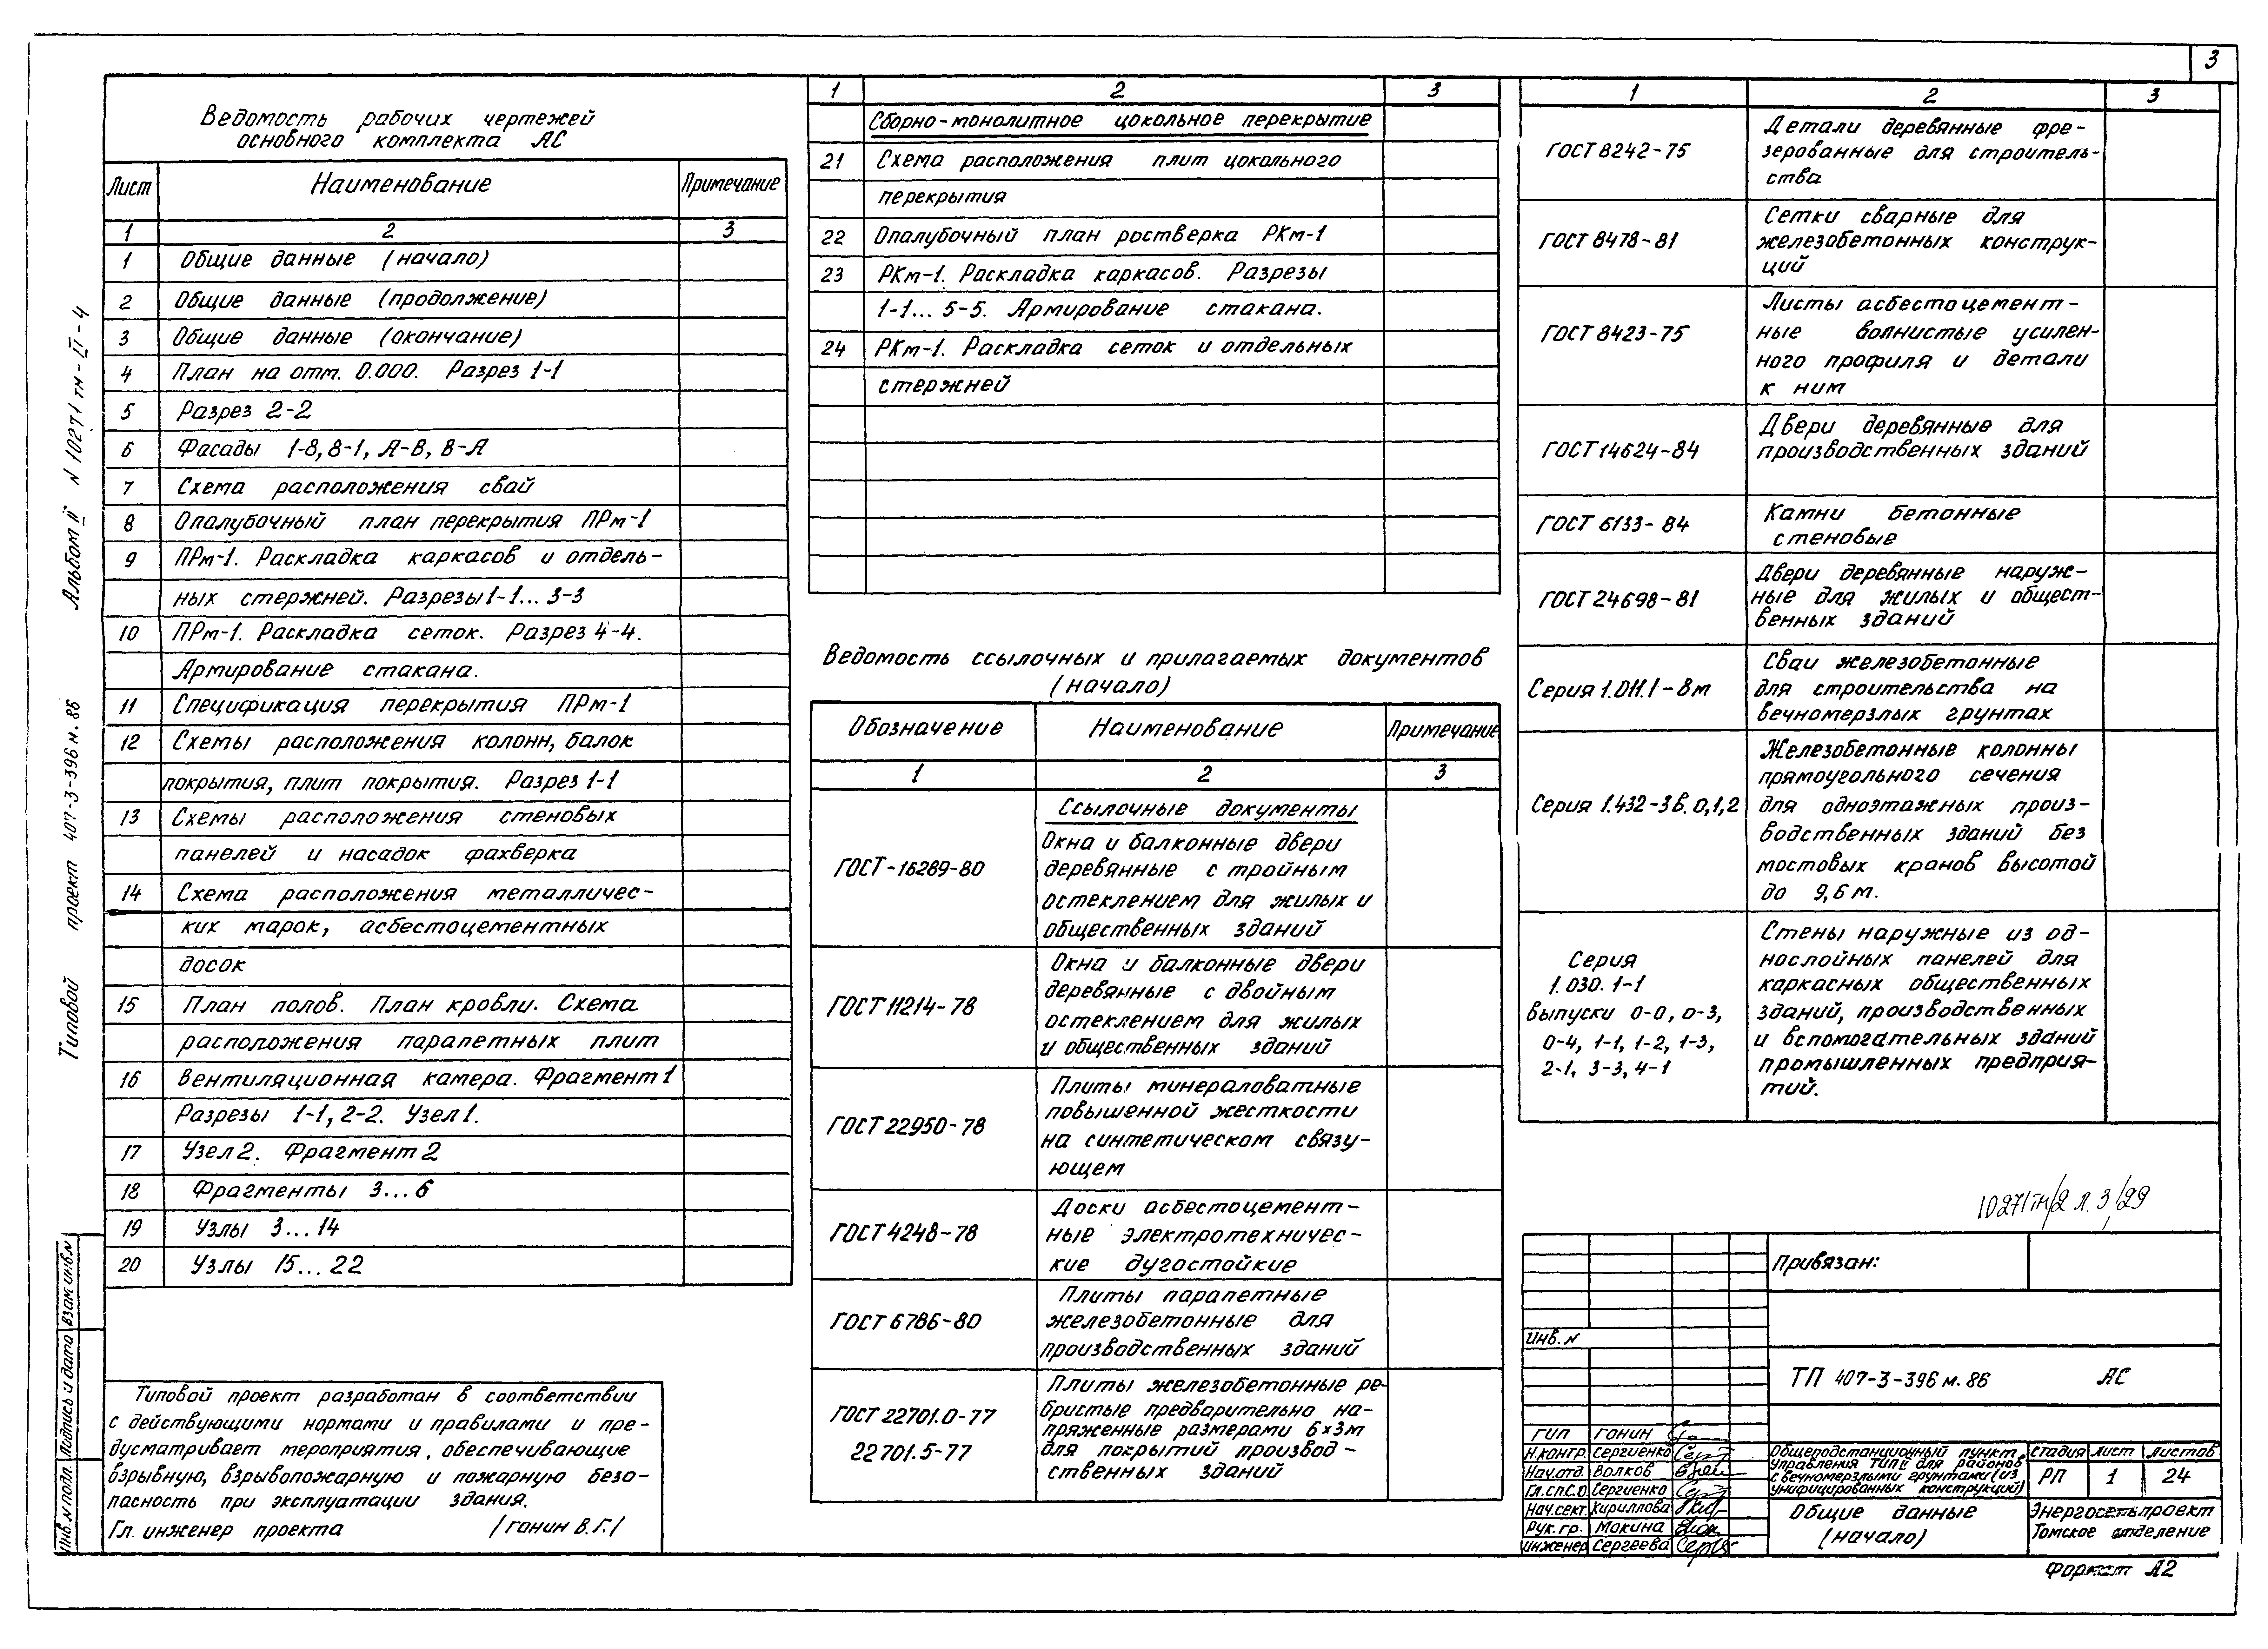 3
Ведомость рабочих чертежей
основного комплекта АС
Лист Наименование Примечание
1 2 3
1 Общие данные (начало)
2 Общие данные (продолжение)
3 Общие данные (окончание)
4 План на отм. 0.000. Разрез 1-1
5 Разрез 2-2
6 Фасады 1-8, 8-1, А-В, В-А
7 Схема расположения свай
8 Опалубочный план перекрытия ПРм-1
9 ПРм-1. Раскладка каркасов и отдель-
ных стержней. Разрезы 1-1... 3-3
10 ПРм-1. Раскладка сеток. Разрез 4-4.
Армирование стакана.
11 Спецификация перекрытия ПРм-1
12 Схемы расположения колонн, балок
покрытия, плит покрытия. Разрез 1-1
13 Схемы расположения стеновых
панелей и насадок фахверка
14 Схема расположения металличес-
ких марок, асбестоцементных
досок
15 План полов. План кровли. Схема
расположения парапетных плит
16 Вентиляционная камера. Фрагмент 1
Разрезы 1-1, 2-2. Узел 1.
17 Узел 2. Фрагмент 2
18 Фрагменты 3...6
19 Узлы 3...14
20 Узлы 15...22
Типовой проект разработан в соответствии
с действующими нормами и правилами и пре-
дусматривает мероприятия, обеспечивающие
взрывную, взрывопожарную и пожарную безо-
пасность при эксплуатации здания.
Гл. инженер проекта /Гонин В.Г./
1 2 3
Сборно-монолитное цокольное перекрытие
21 Схема расположения плит цокольного
перекрытия
22 Опалубочный план ростверка РКм-1
23 РКм-1. Раскладка каркасов. Разрезы
1-1... 5-5. Армирование стакана.
24 РКм-1. Раскладка сеток и отдельных
стержней
Ведомость ссылочных и прилагаемых документов
(начало)
Обозначение Наименование Примечание
1 2 3
Ссылочные документы
ГОСТ-16289-80 Окна и балконные двери
деревянные с тройным
остеклением для жилых и
общественных зданий
ГОСТ 11214-78 Окна и балконные двери
деревянные с двойным
остеклением для жилых
и общественных зданий
ГОСТ 22950-78 Плиты минераловатные
повышенной жесткости
на синтетическом связу-
ющем
ГОСТ 4248-78 Доски асбестоцемент-
ные электротехничес-
кие дугостойкие
ГОСТ 6786-80 Плиты парапетные
железобетонные для
производственных зданий
ГОСТ 22701.0-77
22701.5-77
Плиты железобетонные ре-
бристые предварительно на-
пряженные размерами 6×3м
для покрытий производ-
ственных зданий
1 2 3
ГОСТ 8242-75 Детали деревянные фре-
зерованные для строитель-
ства
ГОСТ 8478-81 Сетки сварные для
железобетонных конструк-
ций
ГОСТ 8423-75 Листы асбестоцемент-
ные волнистые усилен-
ного профиля и детали
к ним
ГОСТ 14624-84 Двери деревянные для
производственных зданий
ГОСТ 6133-84 Камни бетонные
стеновые
ГОСТ 24698-81 Двери деревянные наруж-
ные для жилых и общест-
венных зданий
Серия 1.011.1-8м Сваи железобетонные
для строительства на
вечномерзлых грунтах
Серия 1.432-3 в. 0,1,2 Железобетонные колонны
прямоугольного сечения
для одноэтажных произ-
водственных зданий без
мостовых кранов высотой
до 9,6м.
Серия
1.030.1-1
выпуски 0-0, 0-3,
0-4, 1-1, 1-2, 1-3,
2-1, 3-3, 4-1
Стены наружные из од-
нослойных панелей для
каркасных общественных
зданий, производственных
и вспомогательных зданий
промышленных предприя-
тий.
10271тм/2 л. 3/29
Привязан:
Инв. N
ТП 407-3-396м.86 АС
ГИП Гонин
Н.контр. Сергиенко
Нач.отд. Волков
Гл.сп.С.О. Сергиенко
Нач.сект. Кириллова
Рук.гр. Мокина
Инженер Сергеева
Общеподстанционный пункт
управления тип II для районов
с вечномерзлыми грунтами (из
унифицированных конструкций)
Стадия Лист Листов
РП 1 24
Общие данные
(начало)
Энергосетьпроект
Томское отделение
Формат А2
Типовой проект 407-3-396м.86 Альбом II N 10271тм-II-4
Инв. N подл. Подпись и дата Взам. инв. N